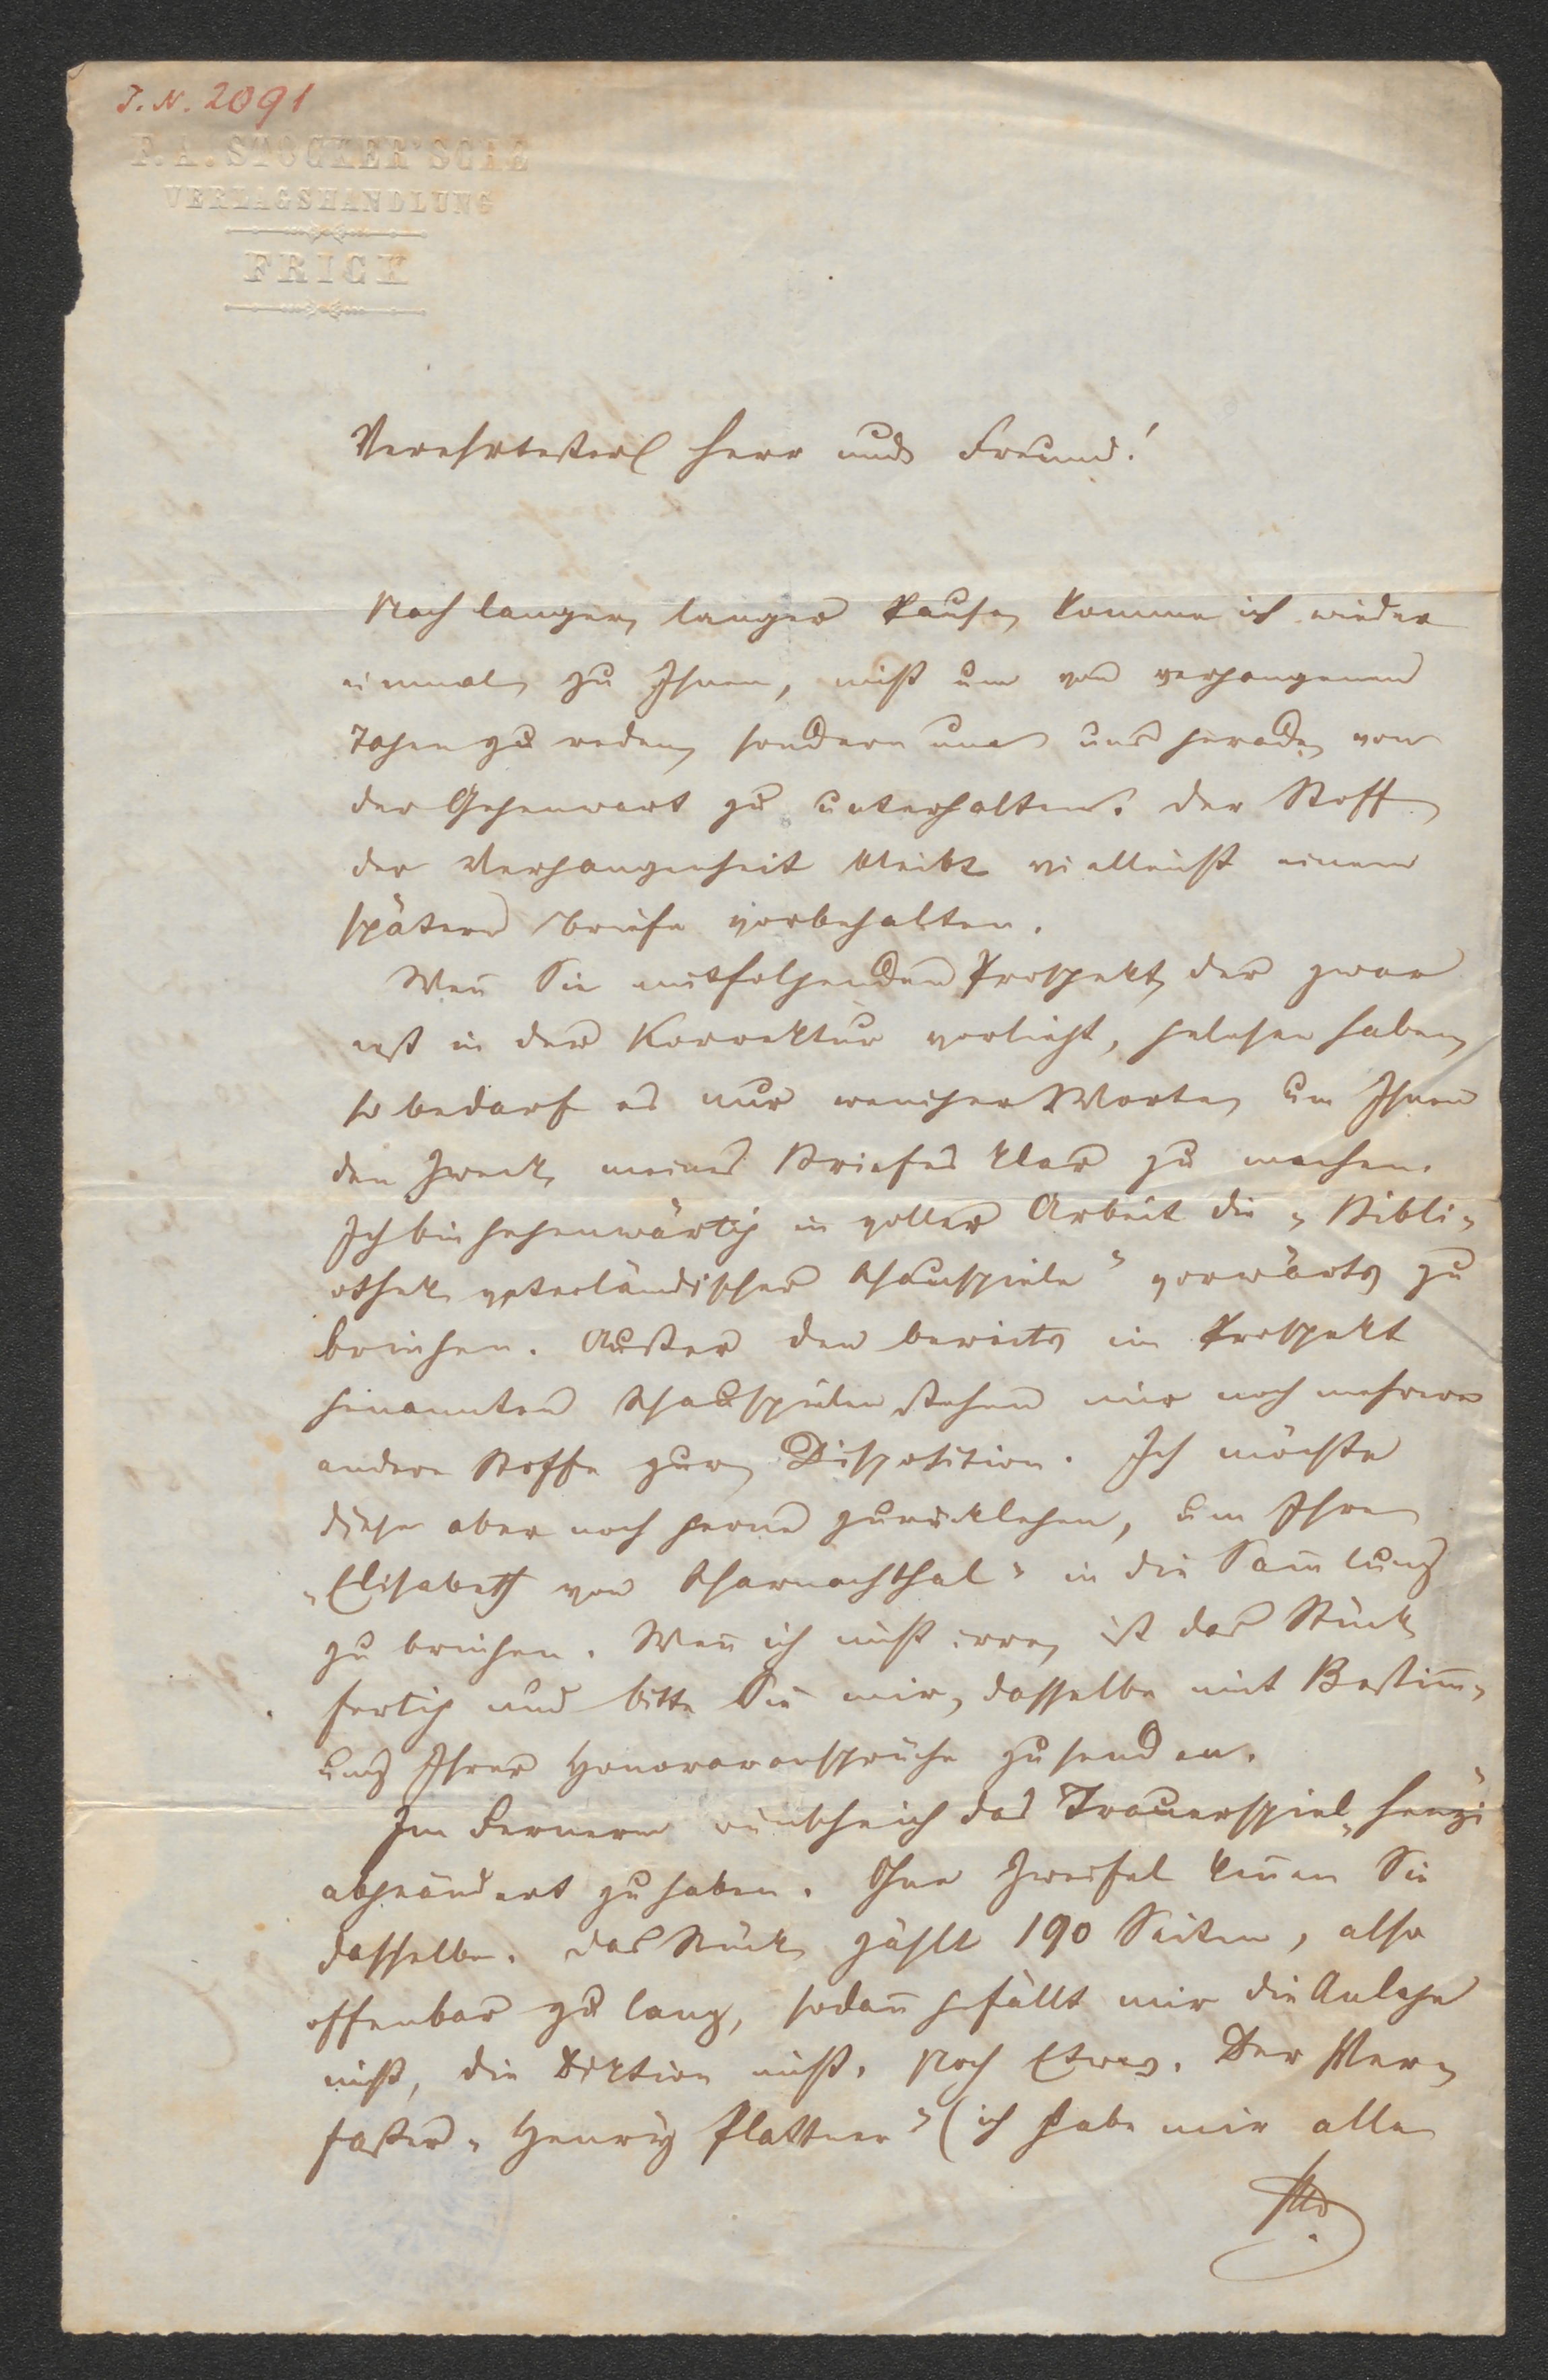 J. N. 2091
F. A. STOCKER'SCHE
VERLAGSHANDLUNG
FRICK
Verehrtester Herr und Freund!
Nach langer, langer Pause, komme ich wieder
einmal zu Ihnen, nicht um von vergangenen
Tagen zu reden, sondern um uns gerade von
der Gegenwart zu unterhalten. Der Stoff
der Vergangenheit bleibt vielleicht einem
spätern Briefe vorbehalten.
Wen̄ Sie mitfolgenden Prospekt, der zwar
erst in der Korrektur vorliegt, gelesen haben,
so bedarf es nur weniger Worte, um Ihnen
den Zweck meines Briefes klar zu machen.
Ich bin gegenwärtig in voller Arbeit die „Bibli-
othek vaterländischer Schauspiele" vorwärts zu
bringen. Außer den bereits im Prospekt
genannten Schauspielen stehen mir noch mehrere
andere Stoffe zur Disposition. Ich möchte
diese aber noch gerne zurücklegen, um Ihre
„Elisabeth von Scharnachthal" in die Sam̄lung
zu bringen. Wen̄ ich nicht irre, ist das Stück
fertig und bitte Sie mir, dasselbe mit Bestim̄-
ung Ihrer Honoraransprüche zu senden.
Im Fernern wünsche ich das Trauerspiel „Henzi"
abgeändert zu haben. Ohne Zweifel ken̄en Sie
dasselbe. Das Stück zählt 190 Seiten, also
offenbar zu lang, sodan̄ gefällt mir die Anlage
nicht, die Diktion nicht. Noch Etwas. Der Ver-
faßer „Henry Plattner" (ich habe mir alle